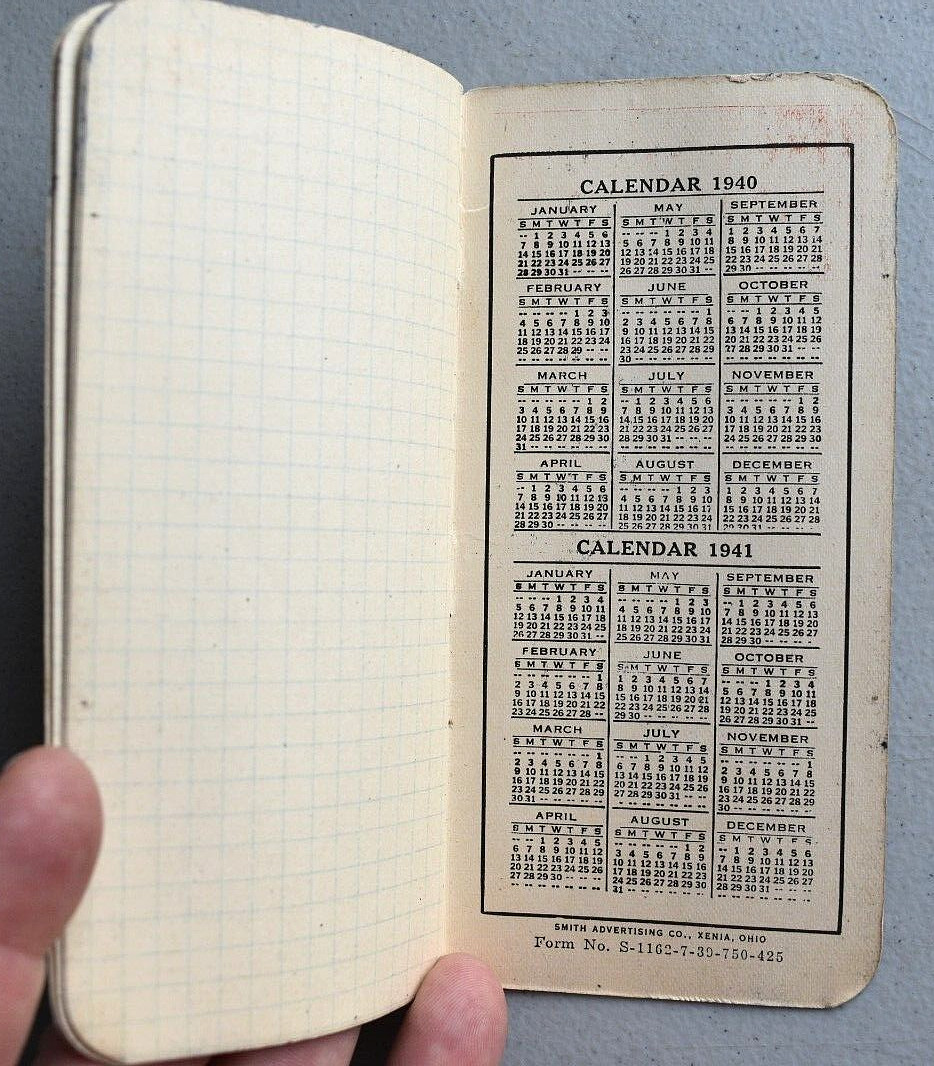 CALENDAR 1940
JANUARY
S M T W T F S
-- 1 2 3 4 5 6
7 8 9 10 11 12 13
14 15 16 17 18 19 20
21 22 23 24 25 26 27
28 29 30 31 -- -- --
FEBRUARY
S M T W T F S
-- -- -- -- 1 2 3
4 5 6 7 8 9 10
11 12 13 14 15 16 17
18 19 20 21 22 23 24
25 26 27 28 29 -- --
-- -- -- -- -- -- --
MARCH
S M T W T F S
-- -- -- -- -- 1 2
3 4 5 6 7 8 9
10 11 12 13 14 15 16
17 18 19 20 21 22 23
24 25 26 27 28 29 30
31 -- -- -- -- -- --
APRIL
S M T W T F S
-- 1 2 3 4 5 6
7 8 9 10 11 12 13
14 15 16 17 18 19 20
21 22 23 24 25 26 27
28 29 30 -- -- -- --
MAY
S M T W T F S
-- -- -- 1 2 3 4
5 6 7 8 9 10 11
12 13 14 15 16 17 18
19 20 21 22 23 24 25
26 27 28 29 30 31 --
JUNE
S M T W T F S
-- -- -- -- -- -- 1
2 3 4 5 6 7 8
9 10 11 12 13 14 15
16 17 18 19 20 21 22
23 24 25 26 27 28 29
30 -- -- -- -- -- --
JULY
S M T W T F S
-- 1 2 3 4 5 6
7 8 9 10 11 12 13
14 15 16 17 18 19 20
21 22 23 24 25 26 27
28 29 30 31 -- -- --
-- -- -- -- -- -- --
AUGUST
S M T W T F S
-- -- -- -- 1 2 3
4 5 6 7 8 9 10
11 12 13 14 15 16 17
18 19 20 21 22 23 24
25 26 27 28 29 30 31
SEPTEMBER
S M T W T F S
1 2 3 4 5 6 7
8 9 10 11 12 13 14
15 16 17 18 19 20 21
22 23 24 25 26 27 28
29 30 -- -- -- -- --
OCTOBER
S M T W T F S
-- -- 1 2 3 4 5
6 7 8 9 10 11 12
13 14 15 16 17 18 19
20 21 22 23 24 25 26
27 28 29 30 31 -- --
-- -- -- -- -- -- --
NOVEMBER
S M T W T F S
-- -- -- -- -- 1 2
3 4 5 6 7 8 9
10 11 12 13 14 15 16
17 18 19 20 21 22 23
24 25 26 27 28 29 30
-- -- -- -- -- -- --
DECEMBER
S M T W T F S
1 2 3 4 5 6 7
8 9 10 11 12 13 14
15 16 17 18 19 20 21
22 23 24 25 26 27 28
29 30 31 -- -- -- --
CALENDAR 1941
JANUARY
S M T W T F S
-- -- -- 1 2 3 4
5 6 7 8 9 10 11
12 13 14 15 16 17 18
19 20 21 22 23 24 25
26 27 28 29 30 31 --
FEBRUARY
S M T W T F S
-- -- -- -- -- -- 1
2 3 4 5 6 7 8
9 10 11 12 13 14 15
16 17 18 19 20 21 22
23 24 25 26 27 28 --
MARCH
S M T W T F S
-- -- -- -- -- -- 1
2 3 4 5 6 7 8
9 10 11 12 13 14 15
16 17 18 19 20 21 22
23 24 25 26 27 28 29
30 31 -- -- -- -- --
APRIL
S M T W T F S
-- -- 1 2 3 4 5
6 7 8 9 10 11 12
13 14 15 16 17 18 19
20 21 22 23 24 25 26
27 28 29 30 -- -- --
-- -- -- -- -- -- --
MAY
S M T W T F S
-- -- -- -- 1 2 3
4 5 6 7 8 9 10
11 12 13 14 15 16 17
18 19 20 21 22 23 24
25 26 27 28 29 30 31
JUNE
S M T W T F S
1 2 3 4 5 6 7
8 9 10 11 12 13 14
15 16 17 18 19 20 21
22 23 24 25 26 27 28
29 30 -- -- -- -- --
JULY
S M T W T F S
-- -- 1 2 3 4 5
6 7 8 9 10 11 12
13 14 15 16 17 18 19
20 21 22 23 24 25 26
27 28 29 30 31 -- --
-- -- -- -- -- -- --
AUGUST
S M T W T F S
-- -- -- -- -- 1 2
3 4 5 6 7 8 9
10 11 12 13 14 15 16
17 18 19 20 21 22 23
24 25 26 27 28 29 30
31 -- -- -- -- -- --
SEPTEMBER
S M T W T F S
-- 1 2 3 4 5 6
7 8 9 10 11 12 13
14 15 16 17 18 19 20
21 22 23 24 25 26 27
28 29 30 -- -- -- --
OCTOBER
S M T W T F S
-- -- -- 1 2 3 4
5 6 7 8 9 10 11
12 13 14 15 16 17 18
19 20 21 22 23 24 25
26 27 28 29 30 31 --
NOVEMBER
S M T W T F S
-- -- -- -- -- -- 1
2 3 4 5 6 7 8
9 10 11 12 13 14 15
16 17 18 19 20 21 22
23 24 25 26 27 28 29
30 -- -- -- -- -- --
DECEMBER
S M T W T F S
-- 1 2 3 4 5 6
7 8 9 10 11 12 13
14 15 16 17 18 19 20
21 22 23 24 25 26 27
28 29 30 31 -- -- --
-- -- -- -- -- -- --
SMITH ADVERTISING CO., XENIA, OHIO
Form No. S-1162-7-39-750-425